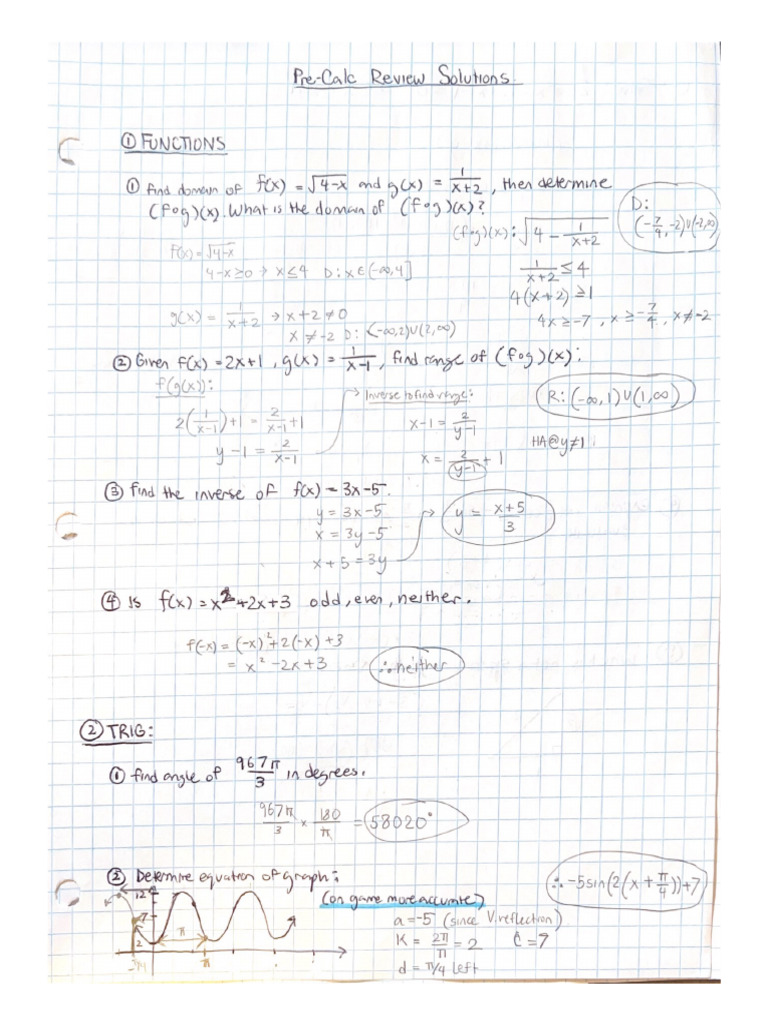 Pre-Calc Review Solutions
① FUNCTIONS
① find domain of f(x) = √4-x and g(x) = 1/x+2, then determine
(fog)(x). What is the domain of (fog)(x)?
D:
(-7/4,-2)U(-2,∞)
(fog)(x): √4 - 1/x+2
f(x) = √4-x
4-x≥0 → x≤4 D: x∈(-∞,4]
1/x+2 ≤ 4
4(x+2) ≥ 1
4x ≥ -7, x ≥ -7/4, x≠-2
g(x) = 1/x+2 → x+2 ≠ 0
x ≠ -2 D: (-∞,2)U(2,∞)
② Given f(x) = 2x+1, g(x) = 1/x-1, find range of (fog)(x):
f(g(x)):
2(1/x-1)+1 = 2/x-1+1
y-1 = 2/x-1
Inverse to find range:
x-1 = 2/y-1
x = 2/y-1 + 1
R: (-∞,1)U(1,∞)
HA@y≠1
③ find the inverse of f(x) = 3x-5.
y = 3x-5
x = 3y-5
x+5 = 3y
y = x+5/3
④ Is f(x) = x²+2x+3 odd, even, neither.
f(-x) = (-x)²+2(-x)+3
= x²-2x+3
∴ neither
② TRIG:
① find angle of 967π/3 in degrees.
967π/3 × 180/π = 58020°
② Determine equation of graph:
(on game more accurate)
∴ -5sin(2(x+π/4))+7
a = -5 (since V.reflection)
K = 2π/π = 2 C = 7
d = π/4 left
12
7
2
π
-π/4
π